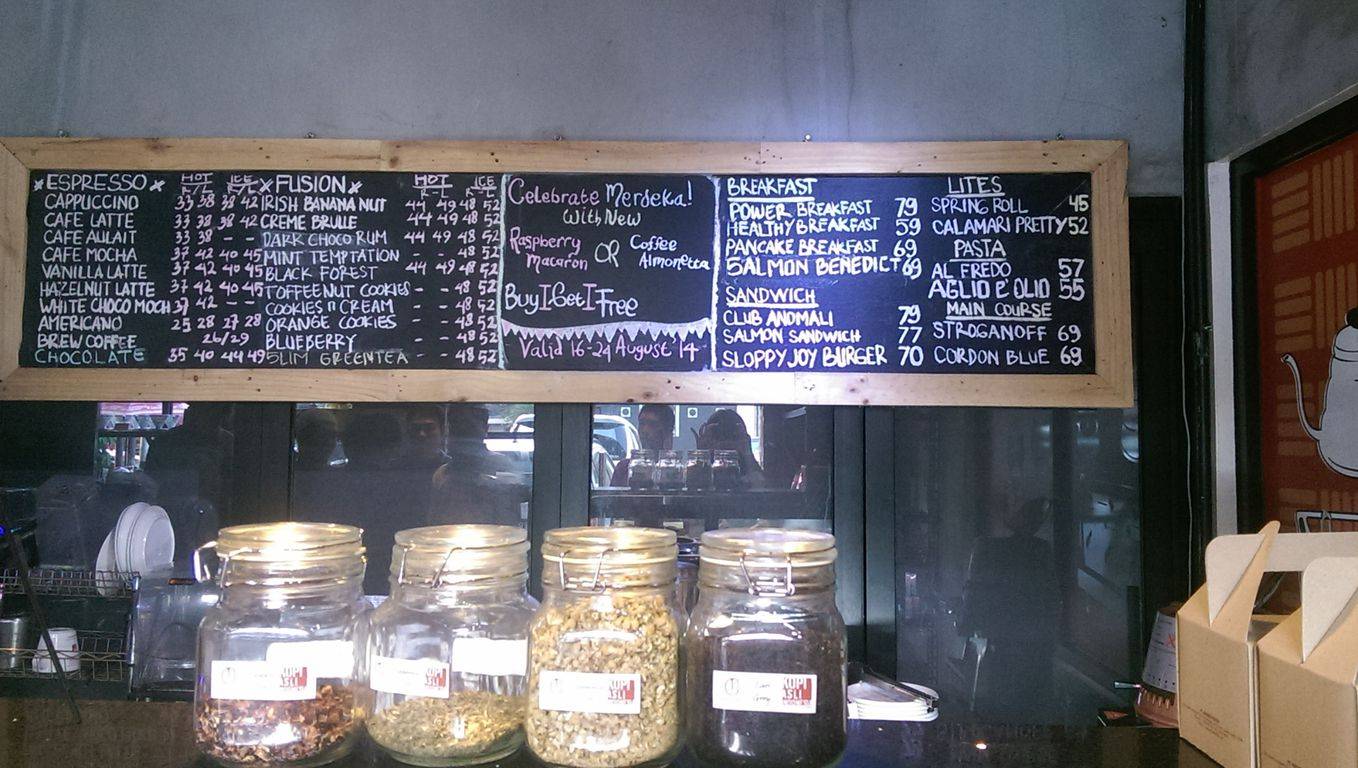 ESPRESSO HOT ICE
R/L R/L
CAPPUCCINO 33 38 38 42
CAFE LATTE 33 38 38 42
CAFE AULAIT 33 38 - -
CAFE MOCHA 37 42 40 45
VANILLA LATTE 37 42 40 45
HAZELNUT LATTE 37 42 40 45
WHITE CHOCO MOCH 37 42 - -
AMERICANO 25 28 27 28
BREW COFFEE 26/29
CHOCOLATE 35 40 44 49
FUSION HOT ICE
R - L R L
IRISH BANANA NUT 44 49 48 52
CREME BRULLE 44 49 48 52
DARK CHOCO RUM 44 49 48 52
MINT TEMPTATION - - 48 52
BLACK FOREST 44 49 48 52
TOFFEENUT COOKIES - - 48 52
COOKIES n CREAM - - 48 52
ORANGE COOKIES - - 48 52
BLUEBERRY - - 48 52
SLIM GREENTEA - - 48 52
Celebrate Merdeka!
With New
Raspberry Macaron OR Coffee Almonetta
Buy 1 Get 1 Free
Valid 16-24 August 14
BREAKFAST
POWER BREAKFAST 79
HEALTHY BREAKFAST 59
PANCAKE BREAKFAST 69
SALMON BENEDICT 69
SANDWICH
CLUB ANOMALI 79
SALMON SANDWICH 77
SLOPPY JOY BURGER 70
LITES
SPRING ROLL 45
CALAMARI PRETTY 52
PASTA
AL FREDO 57
AGLIO E OLIO 55
MAIN COURSE
STROGANOFF 69
CORDON BLUE 69
KOPI
ASLI
KOPI
ASLI
KOPI
ASLI
KOPI
ASLI